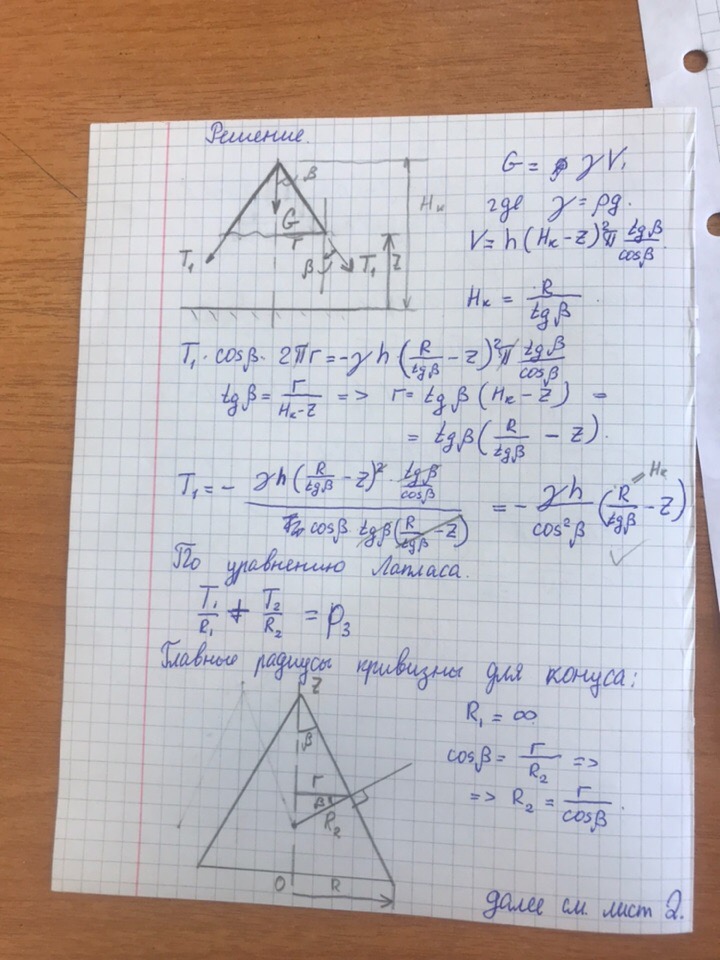 Решение.
β
G
r
T₁
β
T₁
z
Hк
G = γ V,
где γ = ρg.
V = h (Hк - z)² π tgβ/cosβ.
Hк = R/tgβ.
T₁ · cosβ · 2πr = -γ h (R/tgβ - z)² π tgβ/cosβ
tgβ = r/(Hк - z) => r = tgβ (Hк - z) =
= tgβ (R/tgβ - z).
T₁ = - γh (R/tgβ - z)² · tgβ/cosβ / (cosβ · tgβ (R/tgβ - z)) = - γh/cos²β (R/tgβ - z)
= Hк
По уравнению Лапласа.
T₁/R₁ + T₂/R₂ = p₃
Главные радиусы кривизны для конуса:
z
β
r
β
R₂
O
R
R₁ = ∞
cosβ = r/R₂ =>
=> R₂ = r/cosβ.
далее см. лист 2.